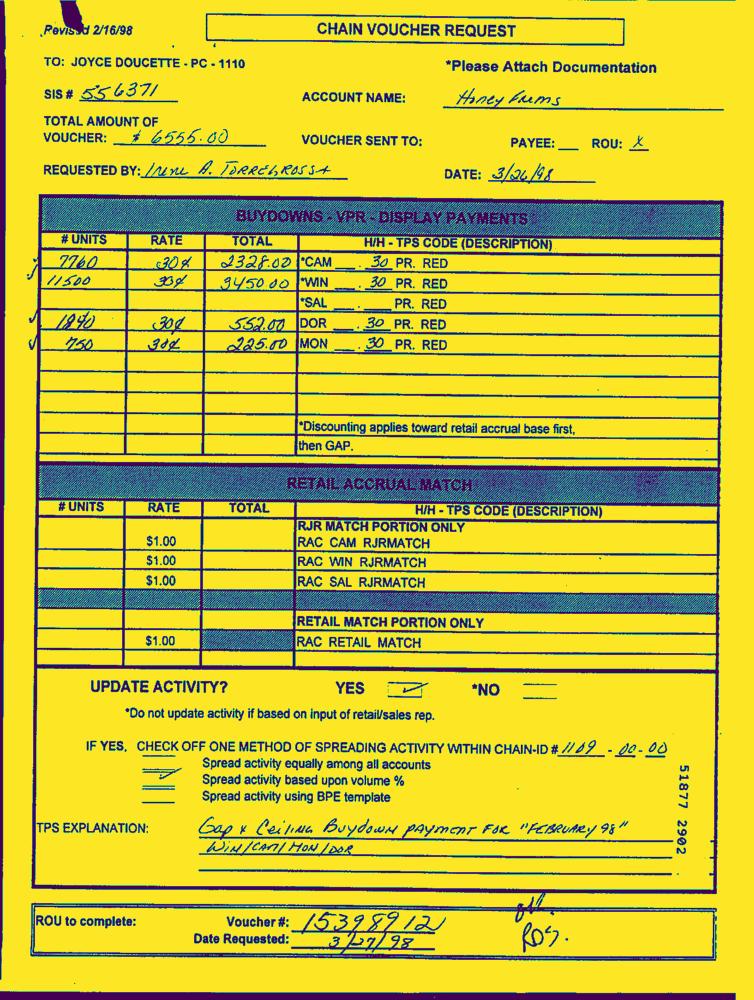 Revised 2/16/98
CHAIN VOUCHER REQUEST
TO: JOYCE DOUCETTE - PC - 1110
*Please Attach Documentation
SIS # 556371
ACCOUNT NAME: Honey Farms
TOTAL AMOUNT OF
VOUCHER: $ 6555.00 VOUCHER SENT TO: PAYEE: ROU: X
REQUESTED BY: Irene A. TORREGROSSA DATE: 3/26/98
BUYDOWNS - VPR - DISPLAY PAYMENTS
# UNITS RATE TOTAL H/H - TPS CODE (DESCRIPTION)
7760 30¢ 2328.00 *CAM . 30 PR. RED
11500 30¢ 3450.00 *WIN . 30 PR. RED
*SAL . PR. RED
1840 30¢ 552.00 DOR . 30 PR. RED
750 30¢ 225.00 MON . 30 PR. RED
*Discounting applies toward retail accrual base first,
then GAP.
RETAIL ACCRUAL MATCH
# UNITS RATE TOTAL H/H - TPS CODE (DESCRIPTION)
RJR MATCH PORTION ONLY
$1.00 RAC CAM RJRMATCH
$1.00 RAC WIN RJRMATCH
$1.00 RAC SAL RJRMATCH
RETAIL MATCH PORTION ONLY
$1.00 RAC RETAIL MATCH
UPDATE ACTIVITY? YES *NO
*Do not update activity if based on input of retail/sales rep.
IF YES, CHECK OFF ONE METHOD OF SPREADING ACTIVITY WITHIN CHAIN-ID # 1109 - 00-00
Spread activity equally among all accounts
Spread activity based upon volume %
Spread activity using BPE template
TPS EXPLANATION: Gap & Ceiling Buydown payment FOR "FEBRUARY 98"
WIN/CAM/MON/DOR
51877 2902
ROU to complete: Voucher #: 15398912
Date Requested: 3/27/98